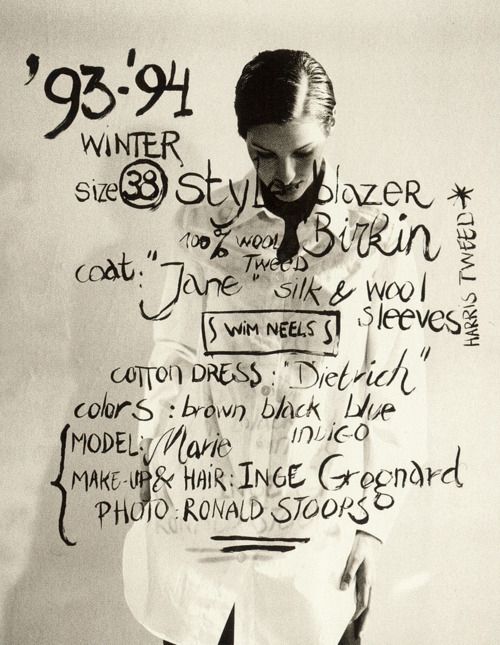 '93-'94
WINTER
size 38 style blazer
100% WOOL Birkin *
TWEED
HARRIS TWEED
coat: "Jane" silk & wool
sleeves
{ WIM NEELS }
COTTON DRESS: "Dietrich"
colors : brown black blue
INDIGO
MODEL: Marie
MAKE-UP & HAIR: INGE Grognard
PHOTO: RONALD STOOPS